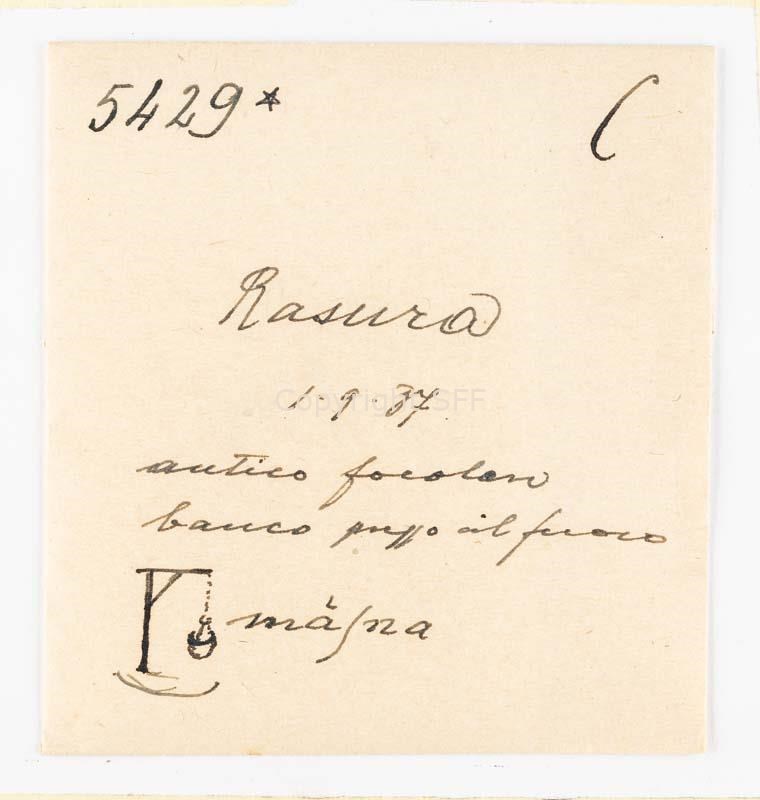 5429* C
Rasura
Copyright SFF
1.9.37
antico focolare
banco presso il fuoco
màʃna